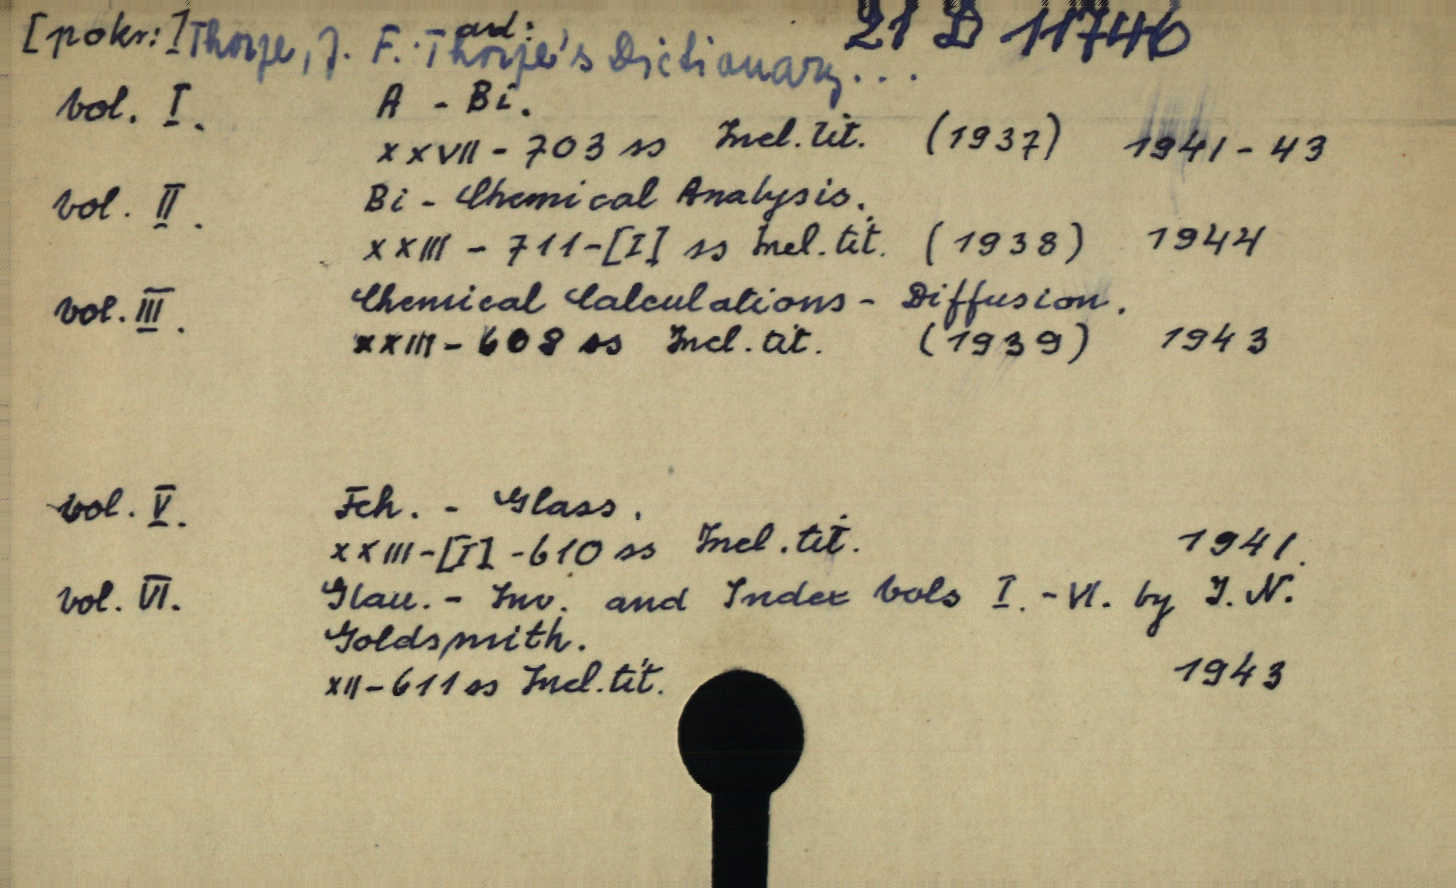 [pokr:] Thorpe, J. F. and: Thorpe's Dictionary... 21 D 11746
vol. I. A - Bi.
XXVII - 703 ss Incl. tit. (1937) 1941-43
vol. II. Bi - Chemical Analysis.
XXIII - 711-[I] ss Incl. tit. (1938) 1944
vol. III. Chemical Calculations - Diffusion.
XXIII - 608 ss Incl. tit. (1939) 1943
vol. V. Feh. - Glass.
XXIII-[I] -610 ss Incl. tit. 1941.
vol. VI. Glau. - Inv. and Index vols I. - VI. by J. N.
Goldsmith.
XII-611 ss Incl. tit. 1943